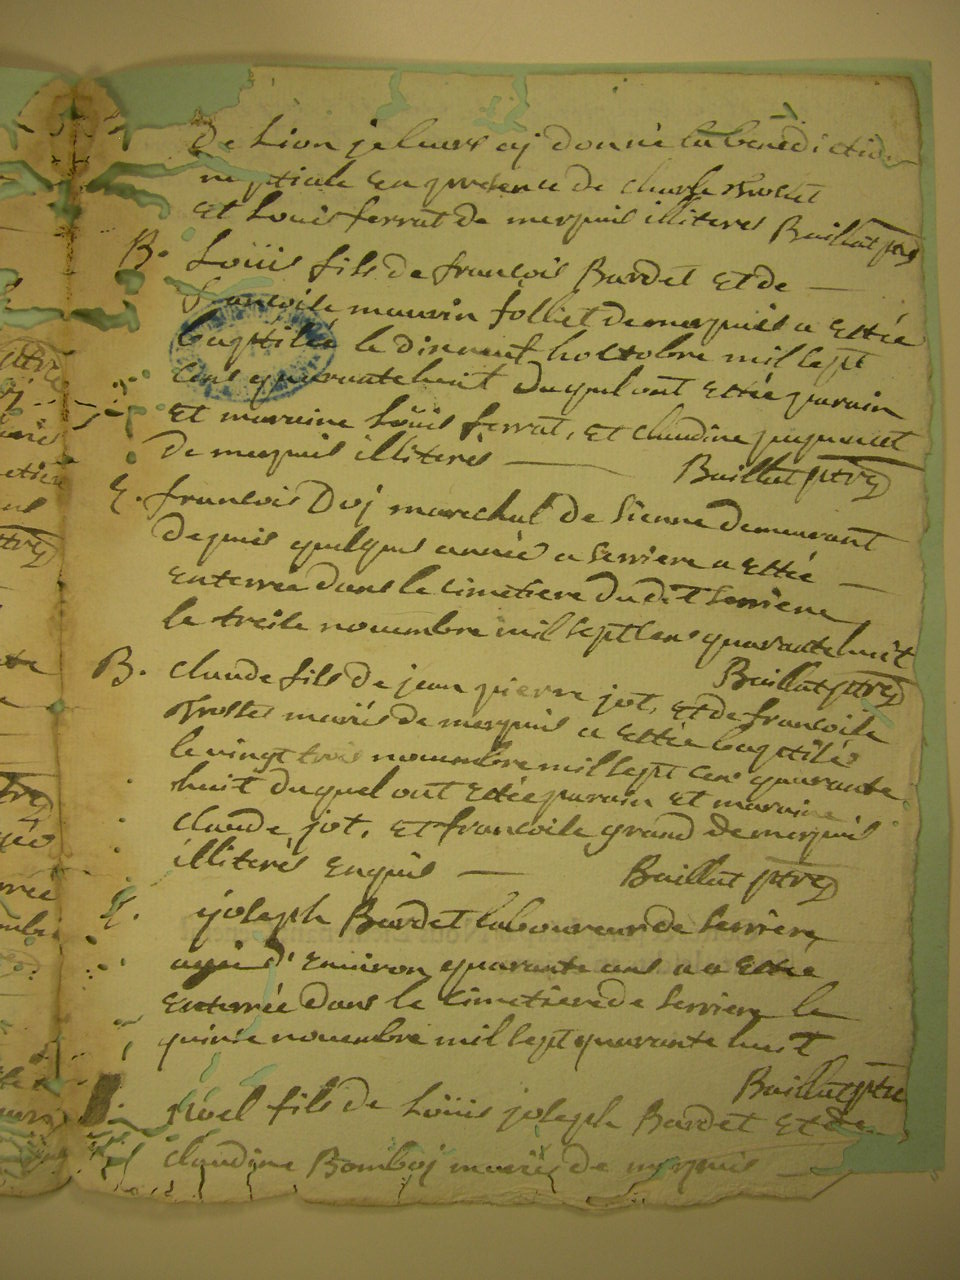 de Lion je leurs ej donné la benediction
nuptiale en presence de charle
et Louis ferrat de merpuis illiteres Baillat ptre
B. Loüis fils de francois Bardet et de
francoise mauvin folliet de merpuis a estée
baptisée le dixneuf hoctobre mil sept
cens quarantehuit duquel ont estée parain
et maraine Loüis ferrat, et claudine
de merpuis illiterés Baillat ptre
E. francois Duj marechal de Sienne demeurant
depuis quelques année a Serriere a estée
enterrée dans le cimetiere dudit Serriere
le treise novembre mil sept cens quarantehuit
Baillat ptre
B. claude fils de jean pierre jot, et de francoise
mariés de merpuis a estée baptisée
le vingt trois novembre mil sept cens quarante
huit duquel ont estée parain et maraine
claude jot, et francoise grand de merpuis
illiterés enquis Baillat ptre
E. joseph Bardet laboureur de Serriere
agée d'environ quarante ans a estée
enterrée dans le cimetiere de Serriere le
quinse novembre mil sept quarante huit
Baillat ptre
Noel fils de Loüis joseph Bardet et de
claudine Bomboj mariés de merpuis